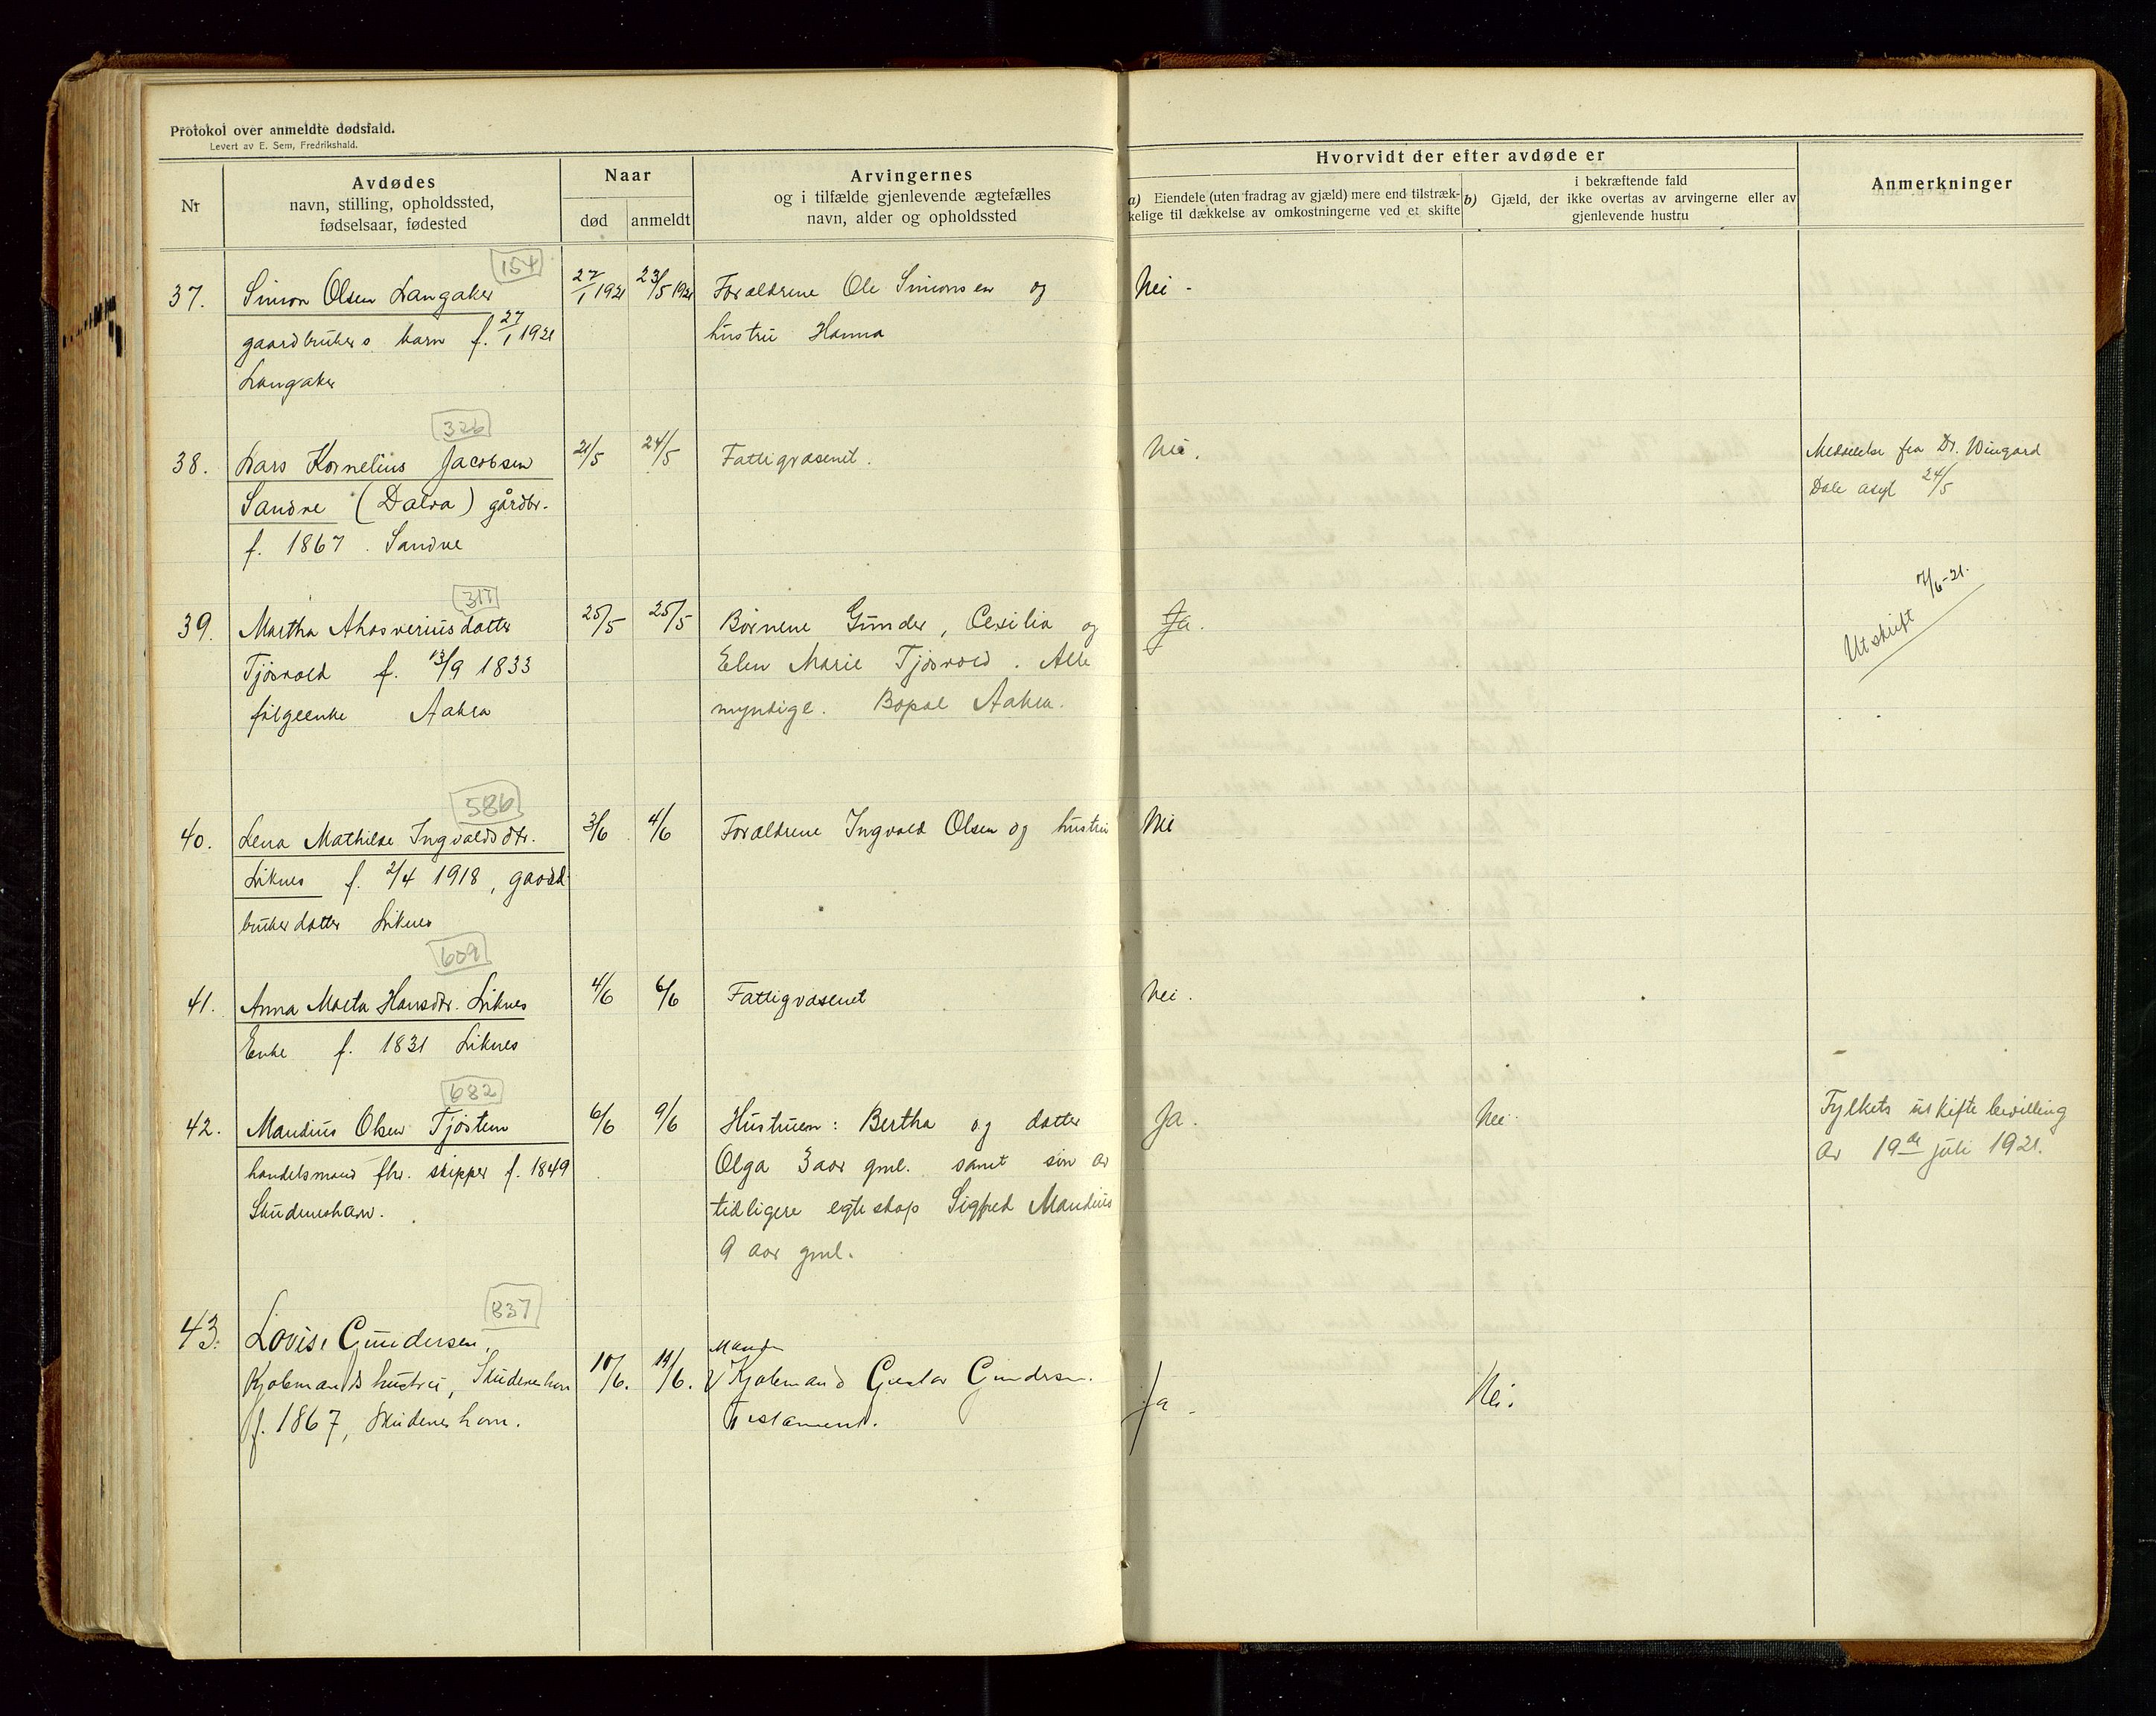 Protokol over anmeldte dødsfald.
Levert av E. Sem, Fredrikshald.
Nr
Avdødes
navn, stilling, opholdssted,
fødselsaar, fødested
Naar
død
anmeldt
Arvingernes
og i tilfælde gjenlevende ægtefælles
navn, alder og opholdssted
Hvorvidt der efter avdøde er
a) Eiendele (uten fradrag av gjæld) mere end tilstræk-
kelige til dækkelse av omkostningerne ved et skifte
i bekræftende fald
b) Gjæld, der ikke overtas av arvingerne eller av
gjenlevende hustru
Anmerkninger
154
37. Simon Olsen Langaker 27/1 1921 23/5 1921 Forældrene Ole Simonsen og Nei -
gaardbrukers barn f. 27/1 1921 hustru Hanna
Langaker
326
38. Lars Kornelius Jacobsen 21/5 24/5 Fattigvæsenet. Nei. Meddelelse fra Dr. Wingard
Sandve (Dalva) gårdbr. Dale asyl 24/5
f. 1867. Sandve
317
39. Martha Ahasveriusdatter 25/5 25/5 Børnene Gunder, Cecilia og Ja. Utskrift 7/6-21.
Tjøsvold f. 13/9 1833 Elen Marie Tjøsvold. Alle
følgeenke Aakra myndige. Bopæl Aakra.
586
40. Lena Mathilde Ingvaldsdtr. 3/6 4/6 Forældrene Ingvald Olsen og hustru Nei
Liknes f. 2/4 1918, gaard
bruker datter Liknes
609
41. Anna Marta Hansdtr. Liknes 4/6 6/6 Fattigvæsenet Nei.
Enke f. 1831 Liknes
682
42. Mandius Olsen Tjøstem 6/6 9/6 Hustruen: Bertha og datter Ja. Nei Fylkets uskiftebevilling
handelsmand fhv. skipper f. 1849 Olga 3 aar gml. samt søn av av 19de juli 1921.
Skudeneshavn. tidligere egteskap Sigfred Mandius
9 aar gml.
837
43. Lovise Gundersen, Manden
Kjøbmands hustru, Skudeneshavn 10/6. 14/6. Kjøbmand Gustav Gundersen. Ja - Nei.
f. 1867, Skudeneshavn. Testament.